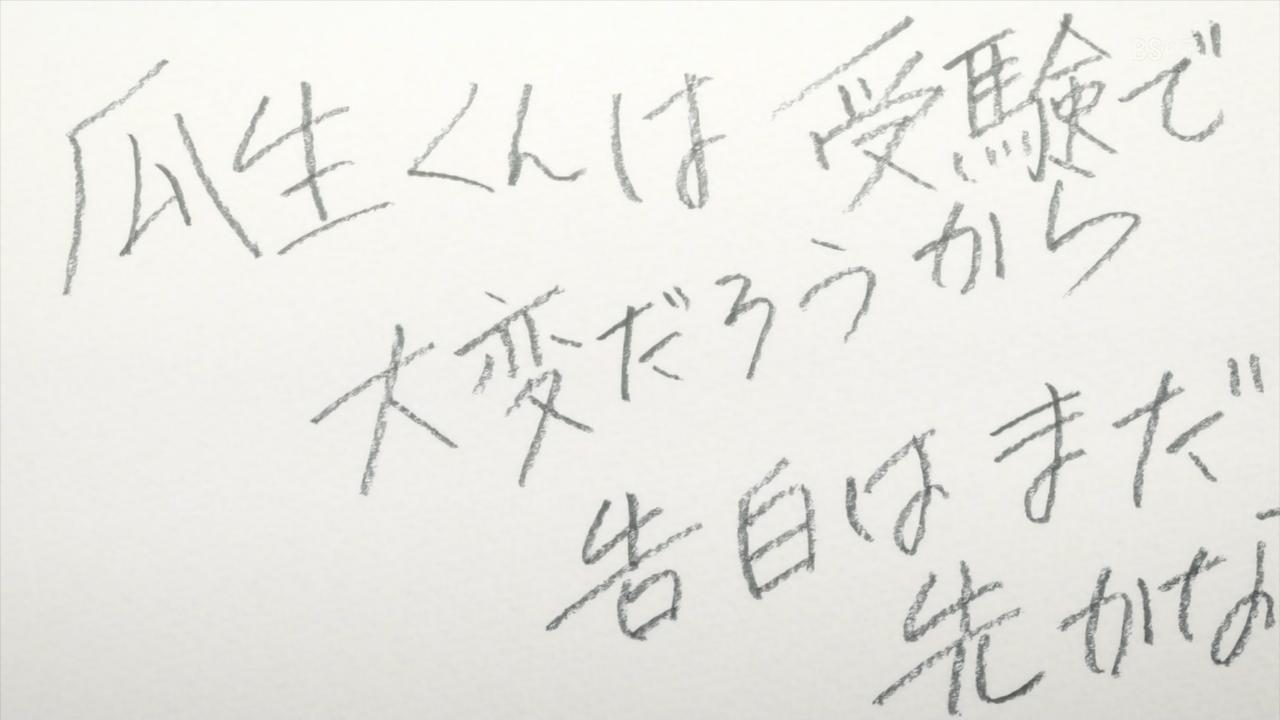 瓜生くんは受験で
大変だろうから
告白はまだ
先かな